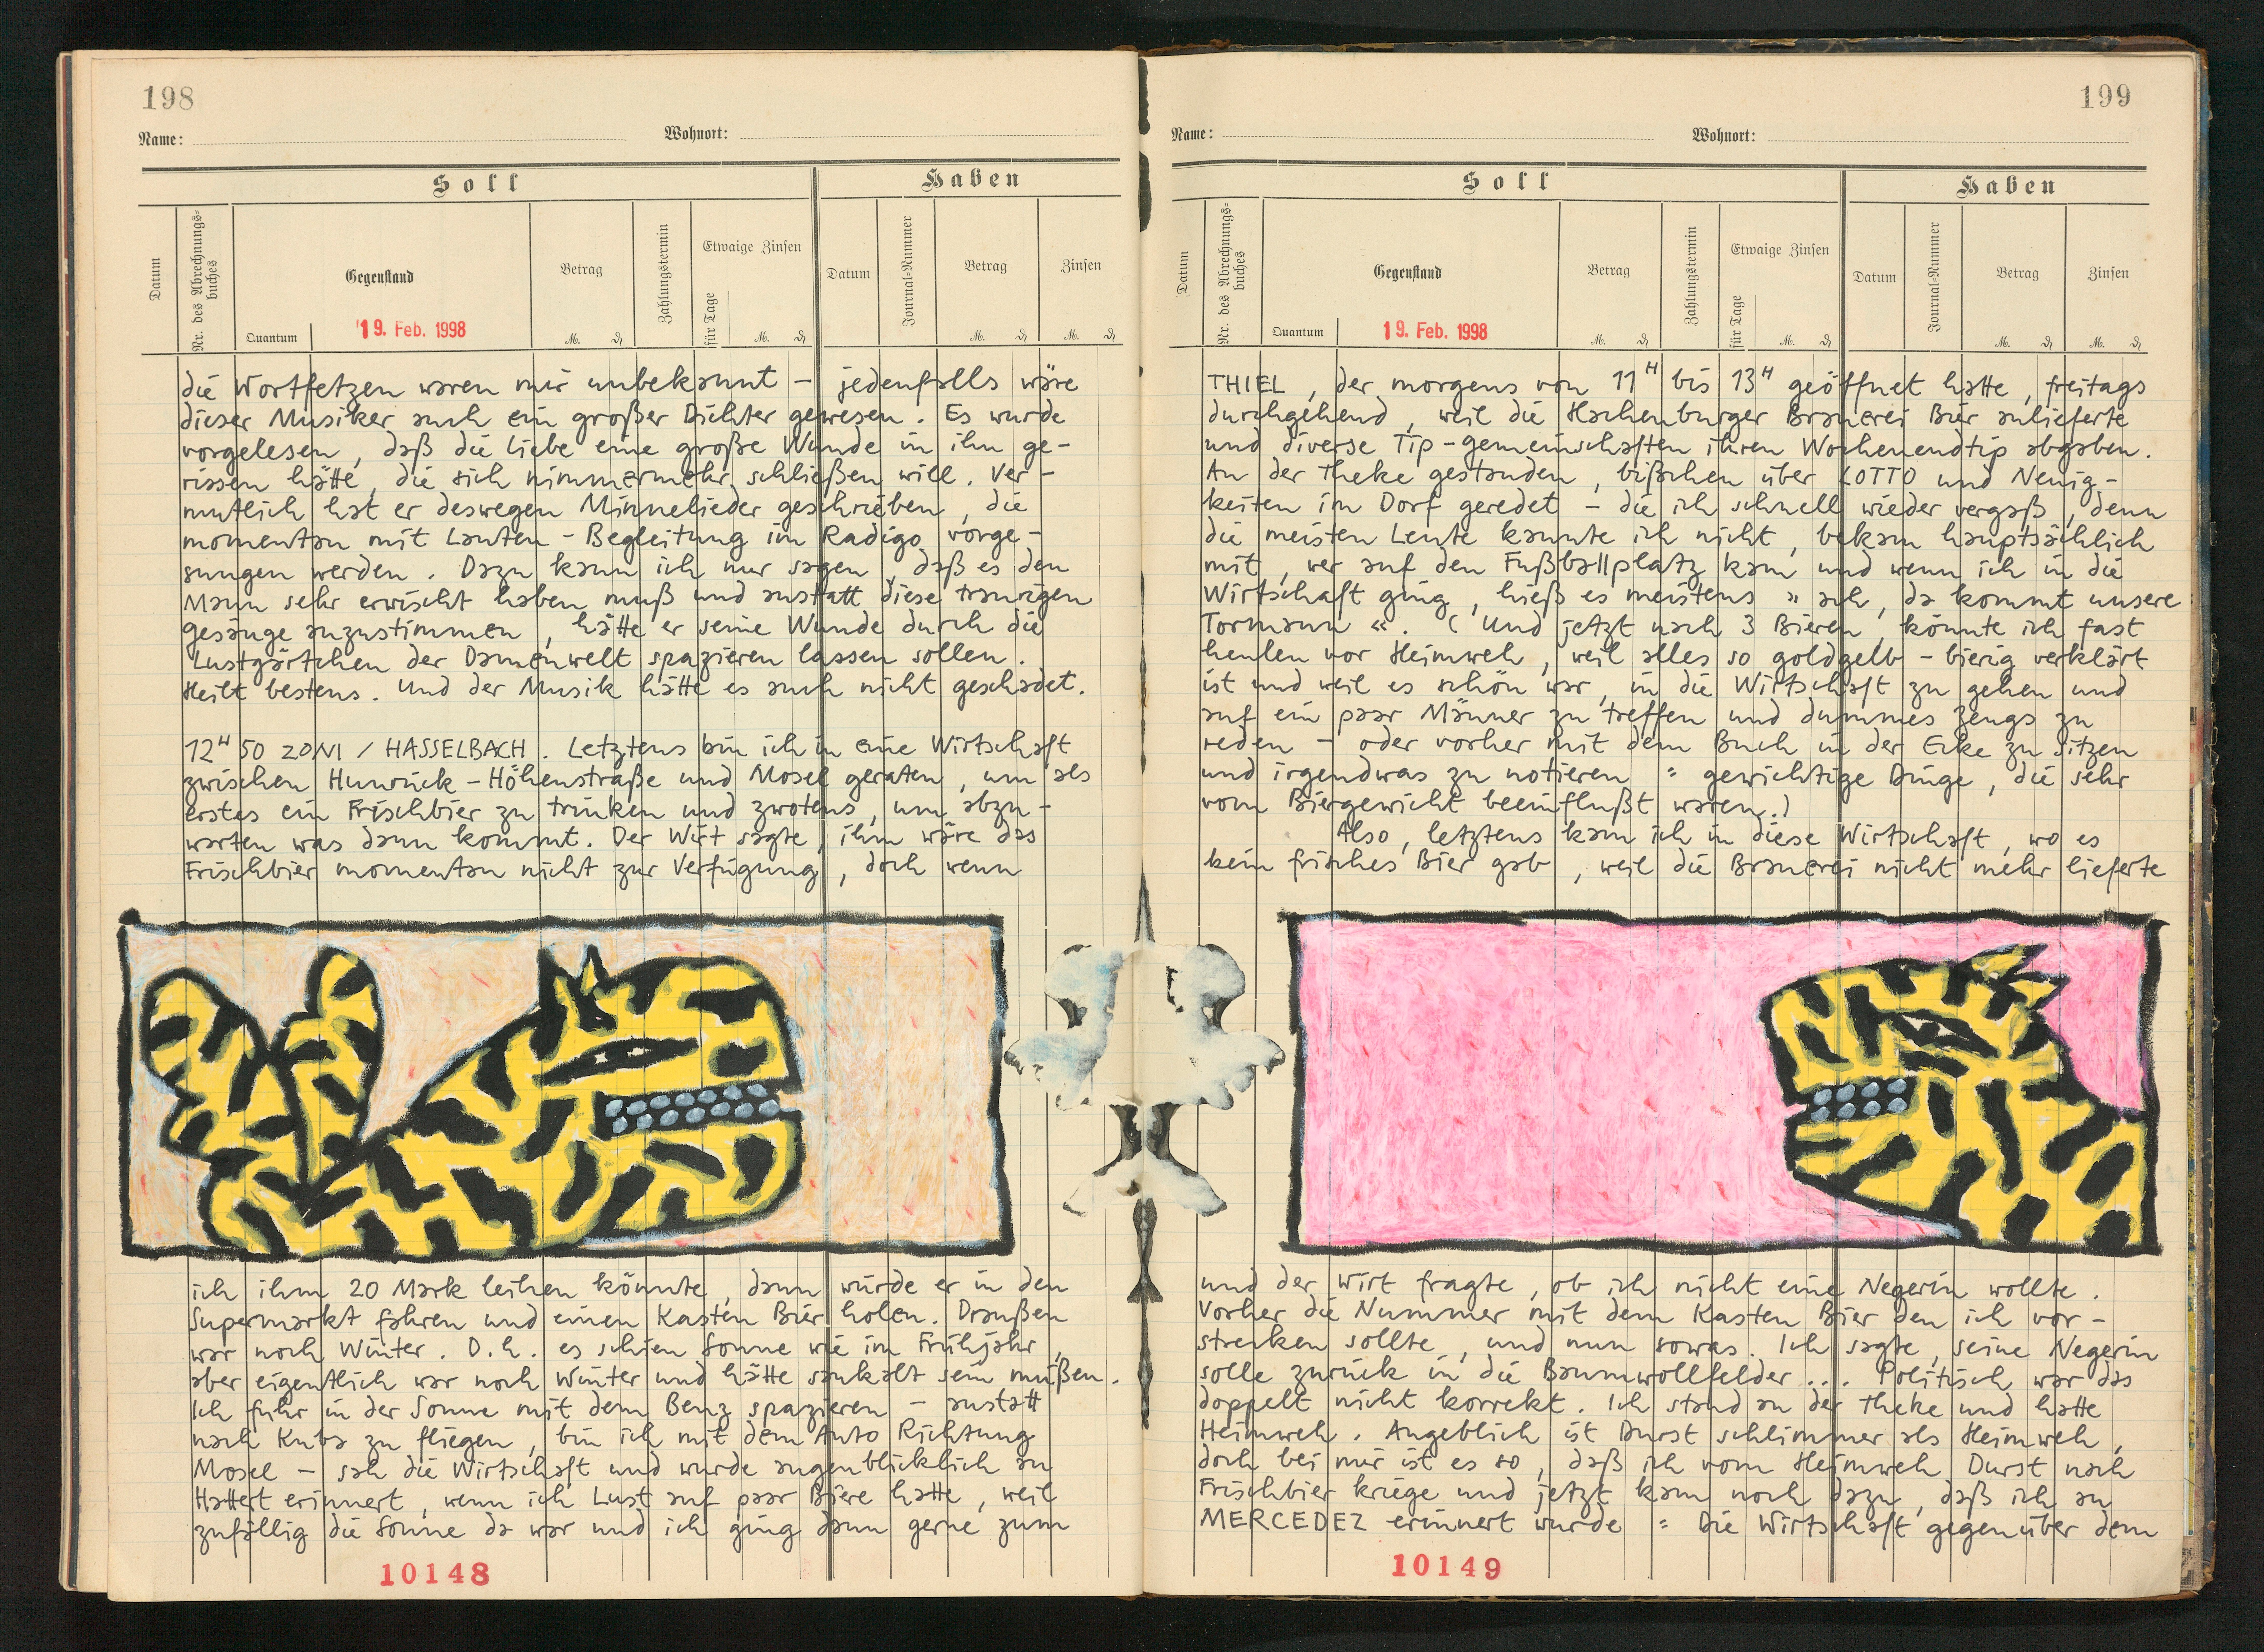 198
Name:
Wohnort:
Soll
Haben
Datum
Nr. des Abrechnungs-
buches
Gegenstand
Quantum
19. Feb. 1998
Betrag
M. ₰
Zahlungstermin
Etwaige Zinsen
für Tage
M. ₰
Datum
Journal-Nummer
Betrag
M. ₰
Zinsen
M. ₰
die Wortfetzen waren mir unbekannt – jedenfalls wäre
dieser Musiker auch ein großer Dichter gewesen. Es wurde
vorgelesen, daß die Liebe eine große Wunde in ihn ge-
rissen hätte, die sich nimmermehr schließen will. Ver-
mutlich hat er deswegen Minnelieder geschrieben, die
momentan mit Lauten-Begleitung im Radigo vorge-
sungen werden. Dazu kann ich nur sagen, daß es den
Mann sehr erwischt haben muß und anstatt diese traurigen
gesänge anzustimmen, hätte er seine Wunde durch die
Lustgärtchen der Damenwelt spazieren lassen sollen.
Heilt bestens. Und der Musik hätte es auch nicht geschadet.
12ᴴ50 ZONI / HASSELBACH. Letztens bin ich in eine Wirtschaft
zwischen Hunrück-Höhenstraße und Mosel geraten, um als
erstes ein Frischbier zu trinken und zwotens, um abzu-
warten was dann kommt. Der Wirt sagte, ihm wäre das
Frischbier momentan nicht zur Verfügung, doch wenn
ich ihm 20 Mark leihen könnte, dann würde er in den
Supermarkt fahren und einen Kasten Bier holen. Draußen
war noch Winter. D.h. es schien Sonne wie im Frühjahr,
aber eigentlich war noch Winter und hätte saukalt sein müßen.
Ich fuhr in der Sonne mit dem Benz spazieren – anstatt
nach Kuba zu fliegen, bin ich mit dem Auto Richtung
Mosel – sah die Wirtschaft und wurde augenblicklich an
Hattert erinnert, wenn ich Lust auf paar Biere hatte, weil
zufällig die Sonne da war und ich ging dann gerne zum
10148
199
Name:
Wohnort:
Soll
Haben
Datum
Nr. des Abrechnungs-
buches
Gegenstand
Quantum
19. Feb. 1998
Betrag
M. ₰
Zahlungstermin
Etwaige Zinsen
für Tage
M. ₰
Datum
Journal-Nummer
Betrag
M. ₰
Zinsen
M. ₰
THIEL, der morgens von 11ᴴ bis 13ᴴ geöffnet hatte, freitags
durchgehend, weil die Hachenburger Brauerei Bier anlieferte
und diverse Tip-gemeinschaften ihren Wochenendtip abgaben.
An der Theke gestanden, bißchen über LOTTO und Neuig-
keiten im Dorf geredet – die ich schnell wieder vergaß, denn
die meisten Leute kannte ich nicht, bekam hauptsächlich
mit, wer auf den Fußballplatz kam und wenn ich in die
Wirtschaft ging, hieß es meistens » ach, da kommt unsere
Tormann «. ( Und jetzt nach 3 Bieren, könnte ich fast
heulen vor Heimweh, weil alles so goldgelb-bierig verklärt
ist und weil es schön war, in die Wirtschaft zu gehen und
auf ein paar Männer zu treffen und dummes Zeugs zu
reden – oder vorher mit dem Buch in der Ecke zu sitzen
und irgendwas zu notieren = gewichtige Dinge, die sehr
vom Biergewicht beeinflußt waren.)
Also, letztens kam ich in diese Wirtschaft, wo es
kein frisches Bier gab, weil die Brauerei nicht mehr lieferte
und der Wirt fragte, ob ich nicht eine Negerin wollte.
Vorher die Nummer mit dem Kasten Bier den ich vor-
strecken sollte, und nun sowas. Ich sagte, seine Negerin
solle zurück in die Baumwollfelder... Politisch war das
doppelt nicht korrekt. Ich stand an der Theke und hatte
Heimweh. Angeblich ist Durst schlimmer als Heimweh,
doch bei mir ist es so, daß ich vom Heimweh Durst nach
Frischbier kriege und jetzt kam noch dazu, daß ich an
MERCEDEZ erinnert wurde = Die Wirtschaft gegenüber dem
10149